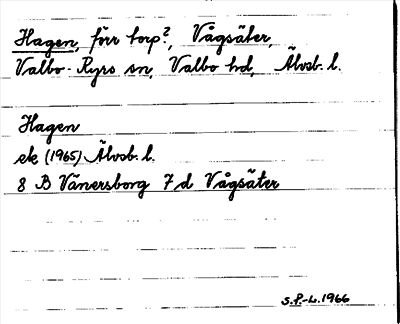 Hagen, förr torp?, Vågsäter,
Valbo-Ryrs sn, Valbo hd, Älvsb. l.
Hagen
ek (1965) Älvsb. l.
8 B Vänersborg 7 d Vågsäter
S.F-L. 1966